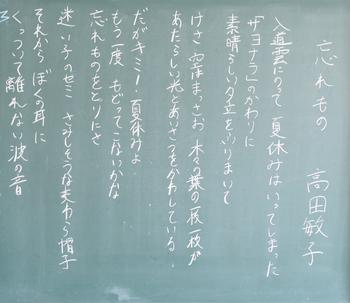 忘れもの　高田敏子
入道雲にのって 夏休みはいってしまった
「サヨナラ」のかわりに
素晴らしい夕立をふりまいて
けさ 空はまっさお 木々の葉の一枚一枚が
あたらしい光とあいさつをかわしている。
だがキミ！夏休みよ
もう一度 もどってこないかな
忘れものをとりにさ
迷い子のセミ さみしそうな麦わら帽子
それからぼくの耳に
くっついて離れない波の音